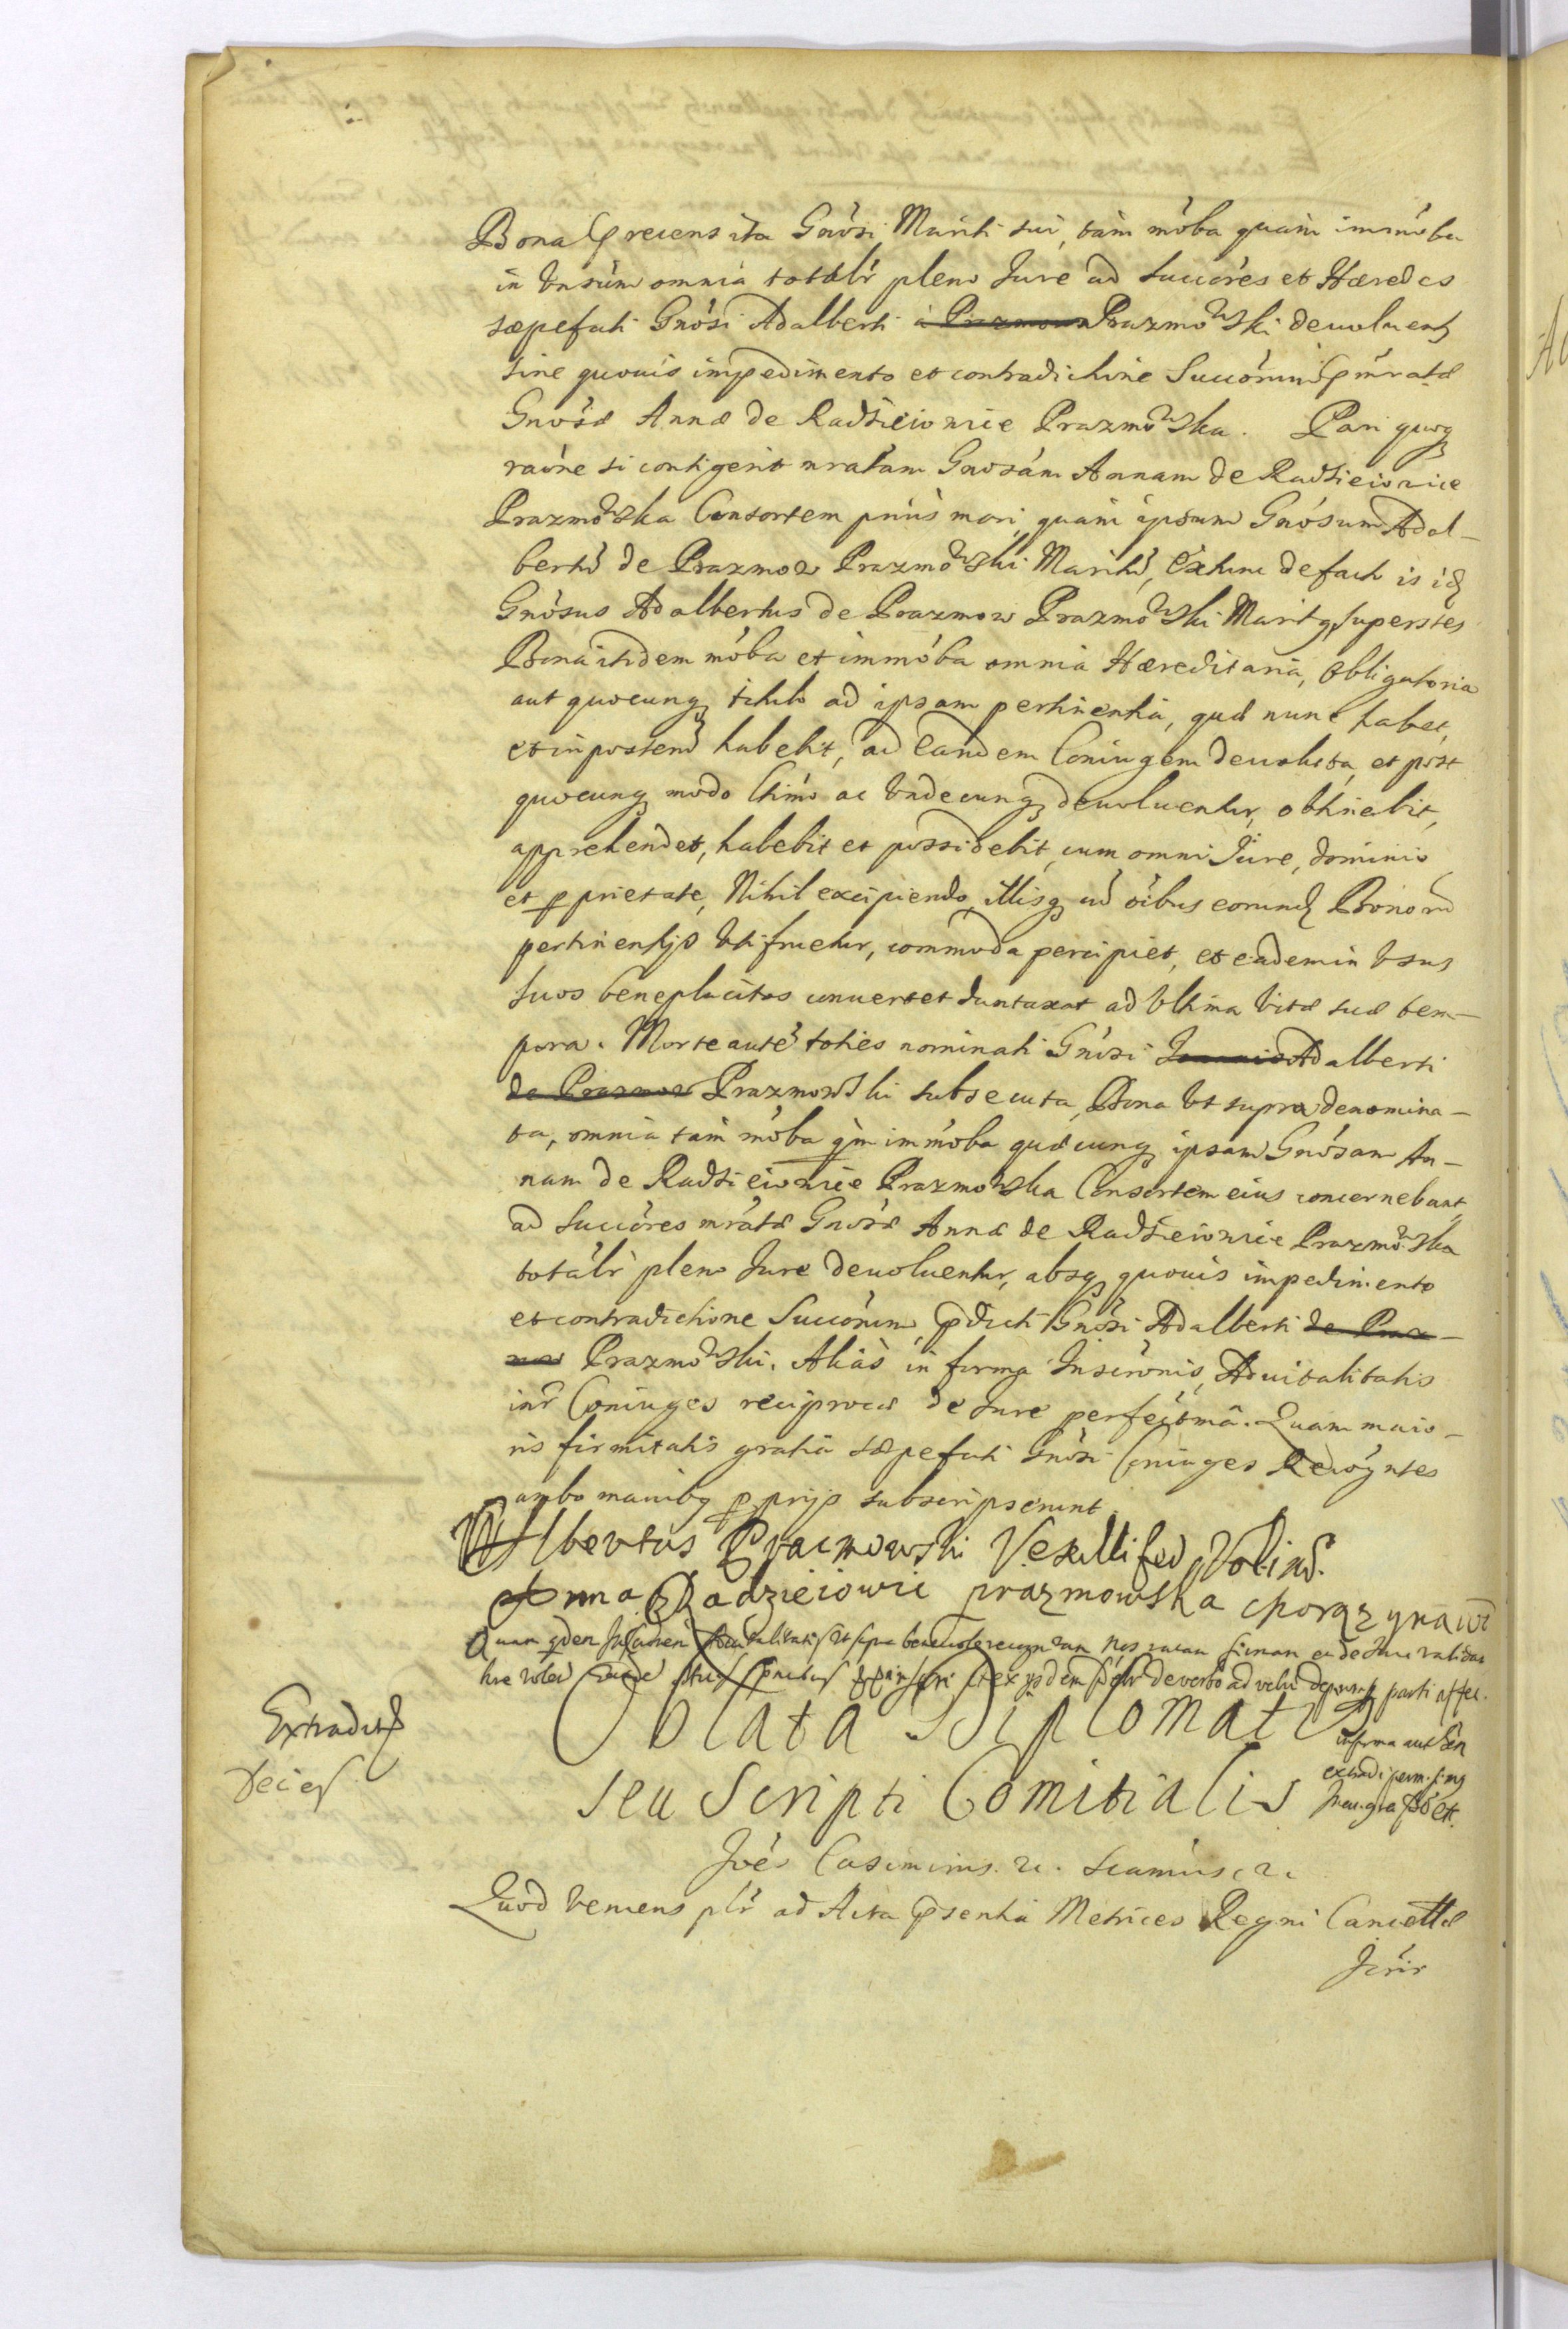 Bona specensita Gnosi Mariti sui, tàm moba quàm immoba
in Vnsum omnia totalr pleno Jure ad succores et Hæredes
sæpefati Gnosi Adalberti à Prazmow Prazmowski deuoluentr
sine quouis impedimento et contradictione Succorum pmratæ
Gnosæ Annæ de Radzieiowice Prazmowska. Pari quoq
raone si contigerit mratam Gnosam Annam de Radzieiowice
Prazmowska Consortem priùs mori, quàm ipsum Gnosum Adal-
bertu de Prazmow Prazmowski Maritu, Extunc de facto is id
Gnosus Adalbertus de Prazmow Prazmowski Maritq superstes
Bona itidem moba et immoba omnia Hæreditaria, Obligatoria
aut quocunq titulo ad ipsam pertinentia, quæ nunc habet,
et in posteru habebit, ad Eandem Coniugem deuoluta, et post
quocunq modo ac Vndecunq deuoluentur, obtinebit,
apprehendet, habebit et possidebit, cum omni Jure, dominio
et pprietate, Nihil excipiendo, illisq cu oibus eorund Bonoru
pertinentijs Vtifruetur, commoda percipiet, et eadem in Vsus
suos beneplacitos conuertet duntaxat ad Vltima Vitæ suæ tem-
pora. Morte aute toties nominati Gnosi Joannis Adalberti
de Prazmow Prazmowski subsecuta, Bona Vt supra denomina-
ta, omnia tàm moba qm immoba quæcunq ipsam Gnosam An-
nam de Radzieiowice Prazmowska Consortem eius concernebant,
ad succores mratæ Gnosæ Annæ de Radzieiowice Prazmowska
totalr pleno Jure deuoluentur, absq quouis impedimento
et contradictione Succorum, pdicti Gnosi Adalberti de Praz-
mow Prazmowski. Aliàs in forma Inscronis, Aduitalitatis
intr Coniuges reciprocæ de Jure perfectmâ. Quam maio-
ris firmitatis gratiâ sæpefati Gnosi Coniuges Recogntes
ambo manibq pprijs subscripserunt.
Albertus Prazmowski Vexillifer
Anna z Radzieiowic prazmowska chorązyna
Quam Aduitalitatis Vt supra recogn Nos ratam firmam
de verbo ad verbu parti
in forma
extradi
Extraditq
decies
Oblata Diplomatis
seu Scripti Comitialis
Joes Casimirus. 2c. seamus. 2c
Quod Veniens plr ad Acta psentia Metrices Regni Cancellæ